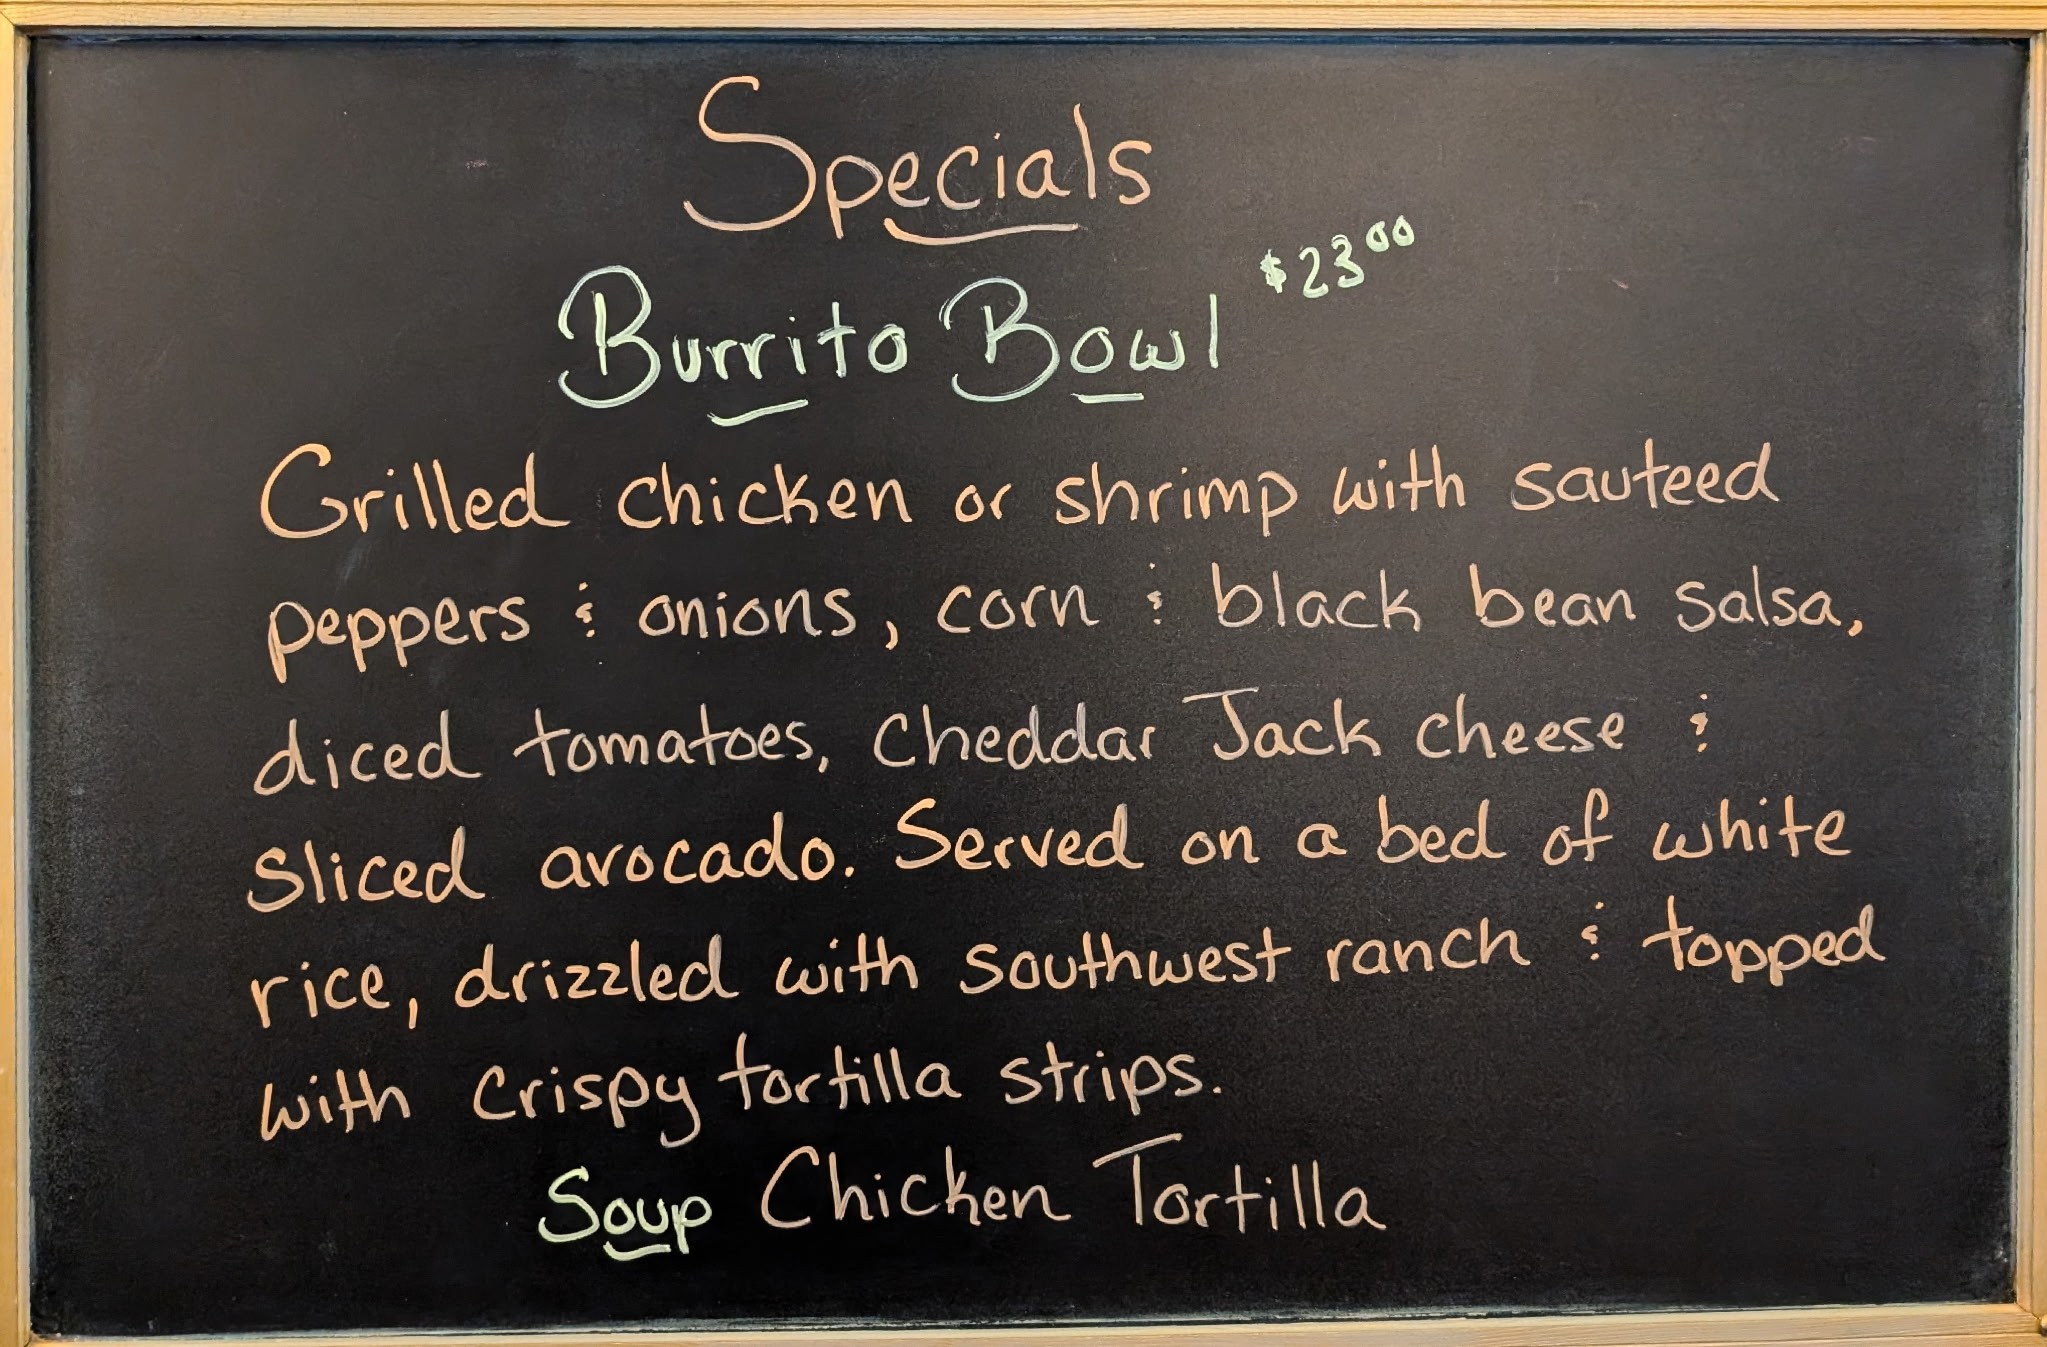 Specials
Burrito Bowl $23.00
Grilled chicken or shrimp with sauteed
peppers & onions, corn & black bean salsa,
diced tomatoes, Cheddar Jack cheese &
Sliced avocado. Served on a bed of white
rice, drizzled with southwest ranch & topped
with crispy tortilla strips.
Soup Chicken Tortilla